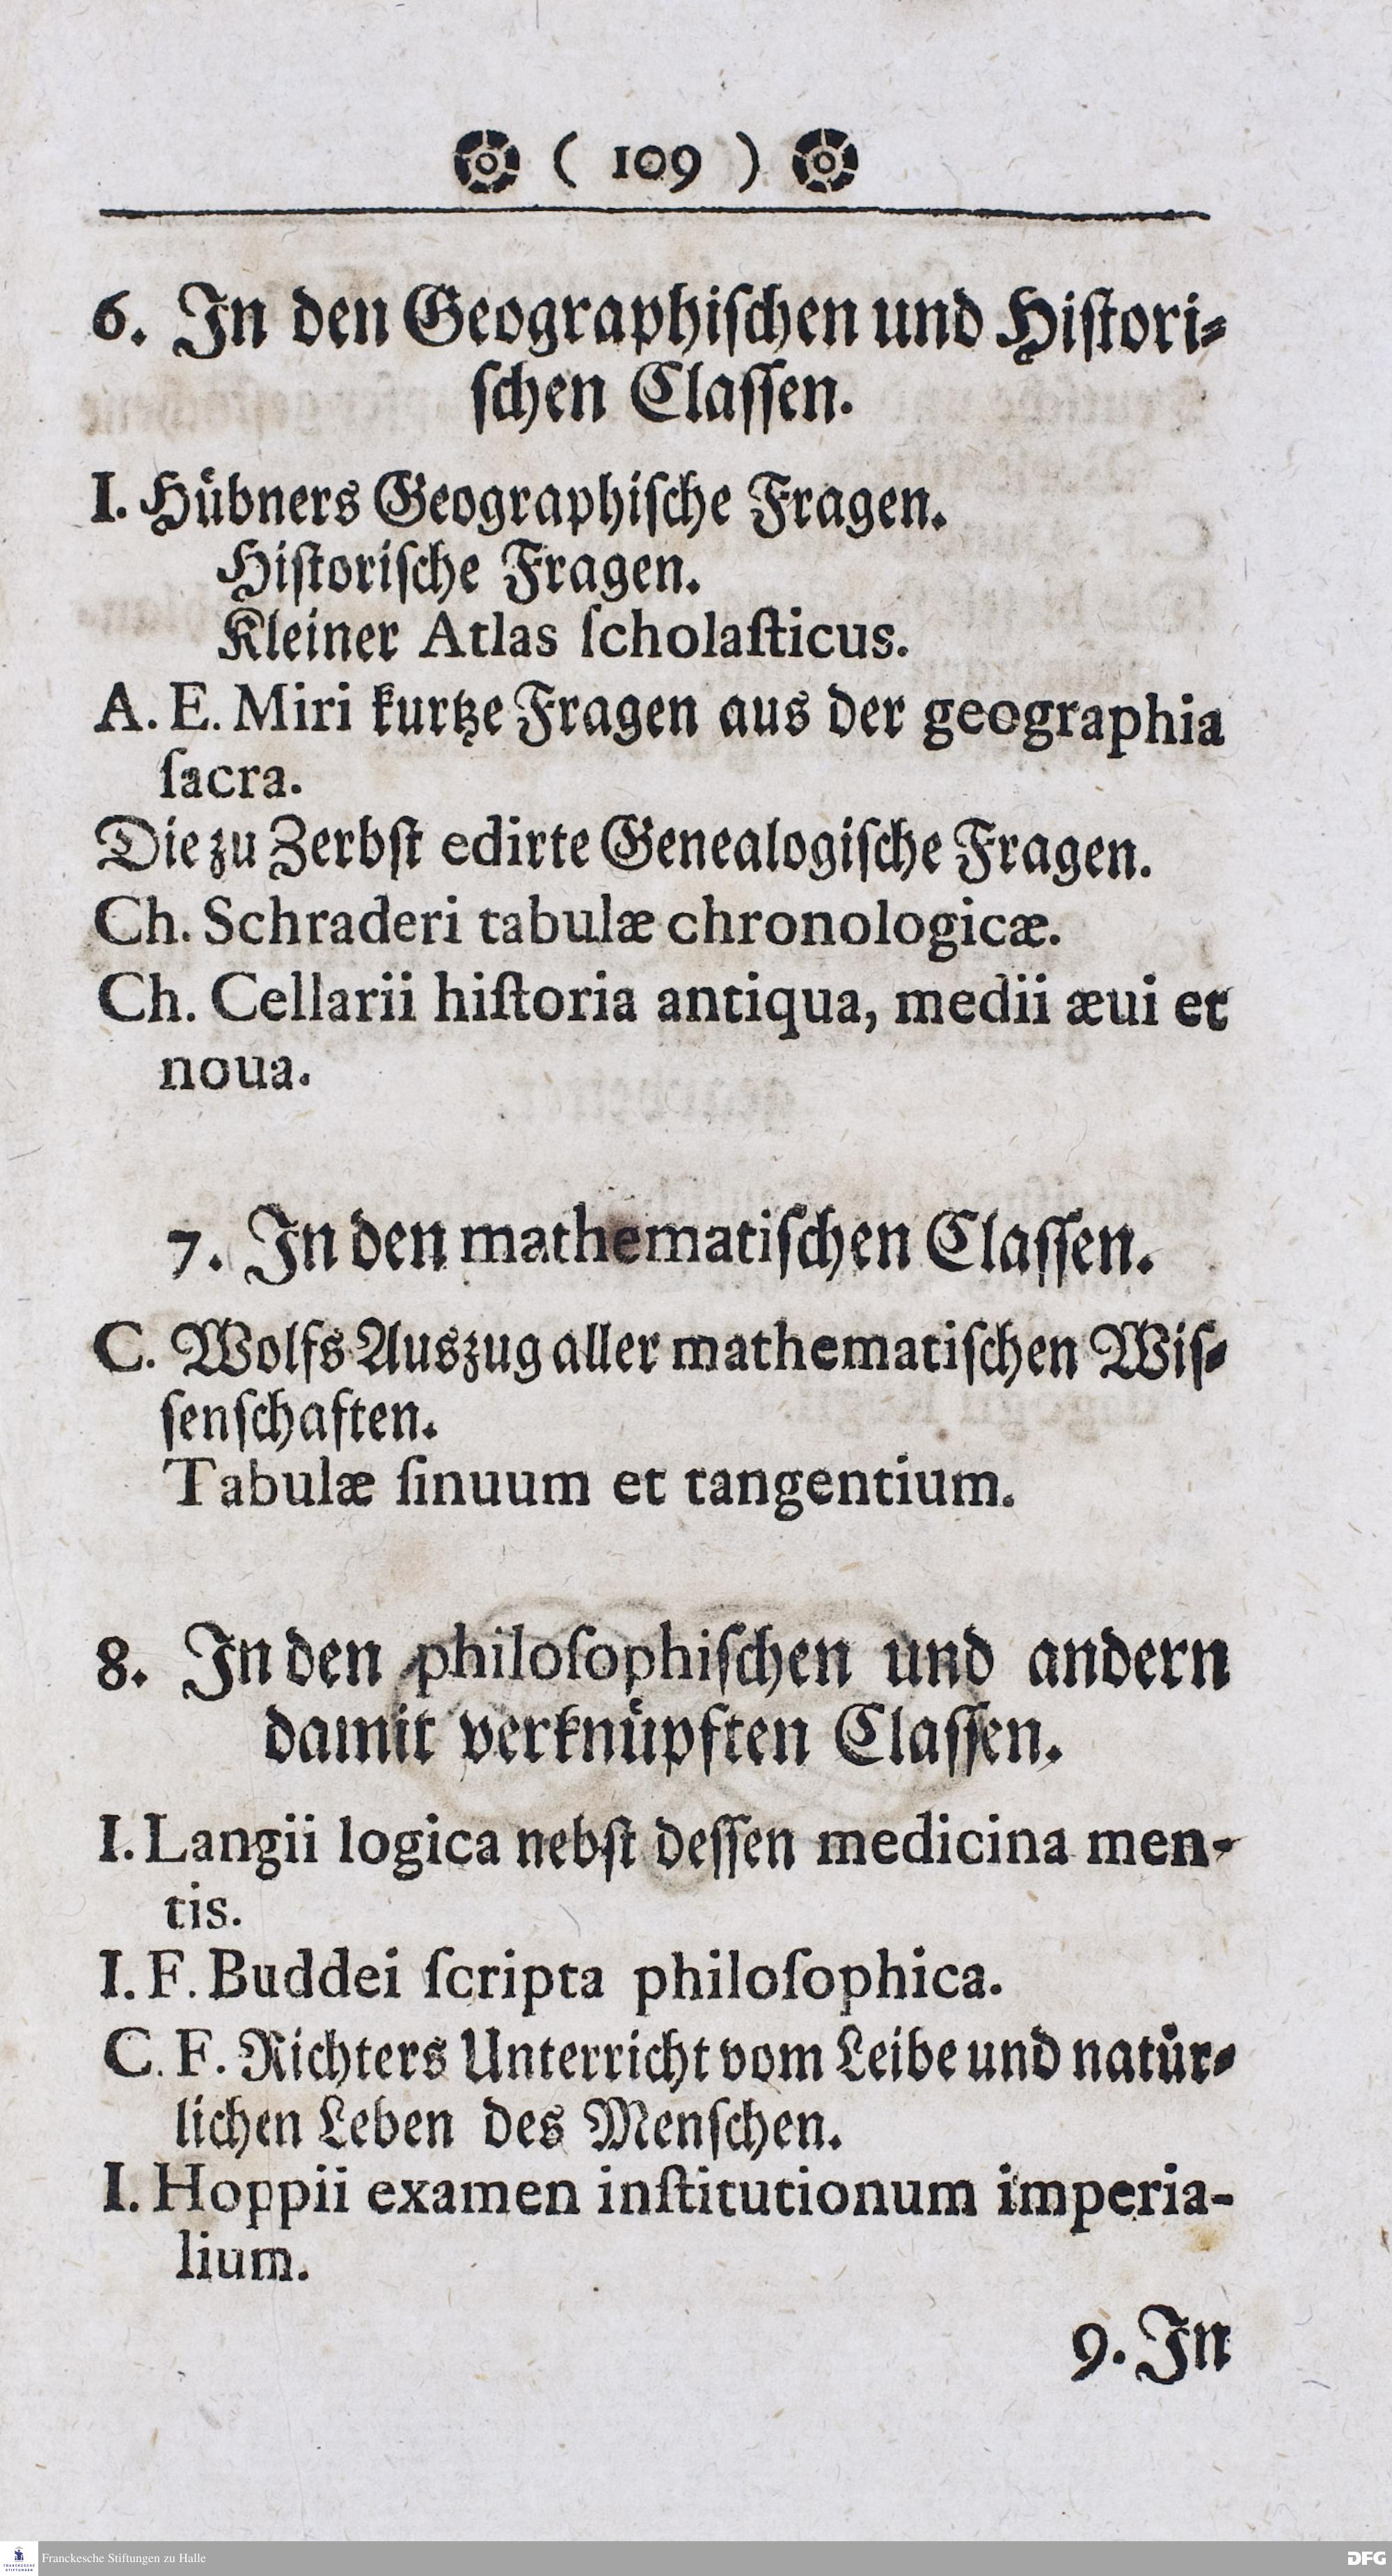 ( 109 )
6. In den Geographiſchen und Hiſtori⸗
ſchen Claſſen.
I. Hübners Geographiſche Fragen.
Hiſtoriſche Fragen.
Kleiner Atlas ſcholaſticus.
A. E. Miri kurtze Fragen aus der geographia
ſacra.
Die zu Zerbſt edirte Genealogiſche Fragen.
Ch. Schraderi tabulæ chronologicæ.
Ch. Cellarii hiſtoria antiqua, medii æui et
noua.
7. In den mathematiſchen Claſſen.
C. Wolfs Auszug aller mathematiſchen Wiſ⸗
ſenſchaften.
Tabulæ ſinuum et tangentium.
8. In den philoſophiſchen und andern
damit verknüpften Claſſen.
I. Langii logica nebſt deſſen medicina men-
tis.
I. F. Buddei ſcripta philoſophica.
C. F. Richters Unterricht vom Leibe und natür⸗
lichen Leben des Menſchen.
I. Hoppii examen inſtitutionum imperia-
lium.
9. In
FRANCKESCHE STIFTUNGEN
Franckesche Stiftungen zu Halle
DFG